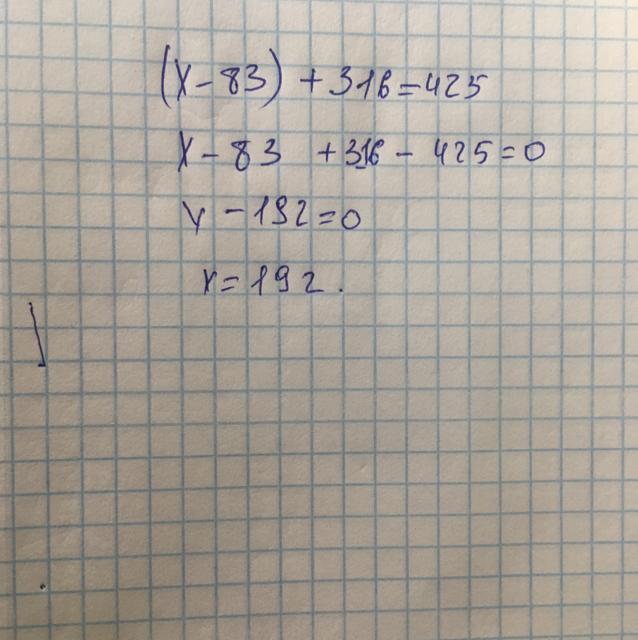 (x-83) + 316 = 425
x - 83 + 316 - 425 = 0
x - 192 = 0
x = 192.